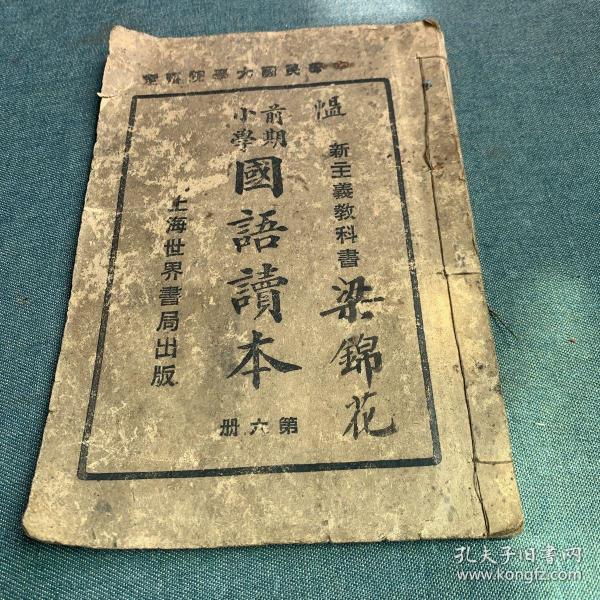 中華民國大學院審定
溫
新主義教科書
梁錦花
前期
小學
國語讀本
第六册
上海世界書局出版
孔夫子旧书网
www.kongfz.com